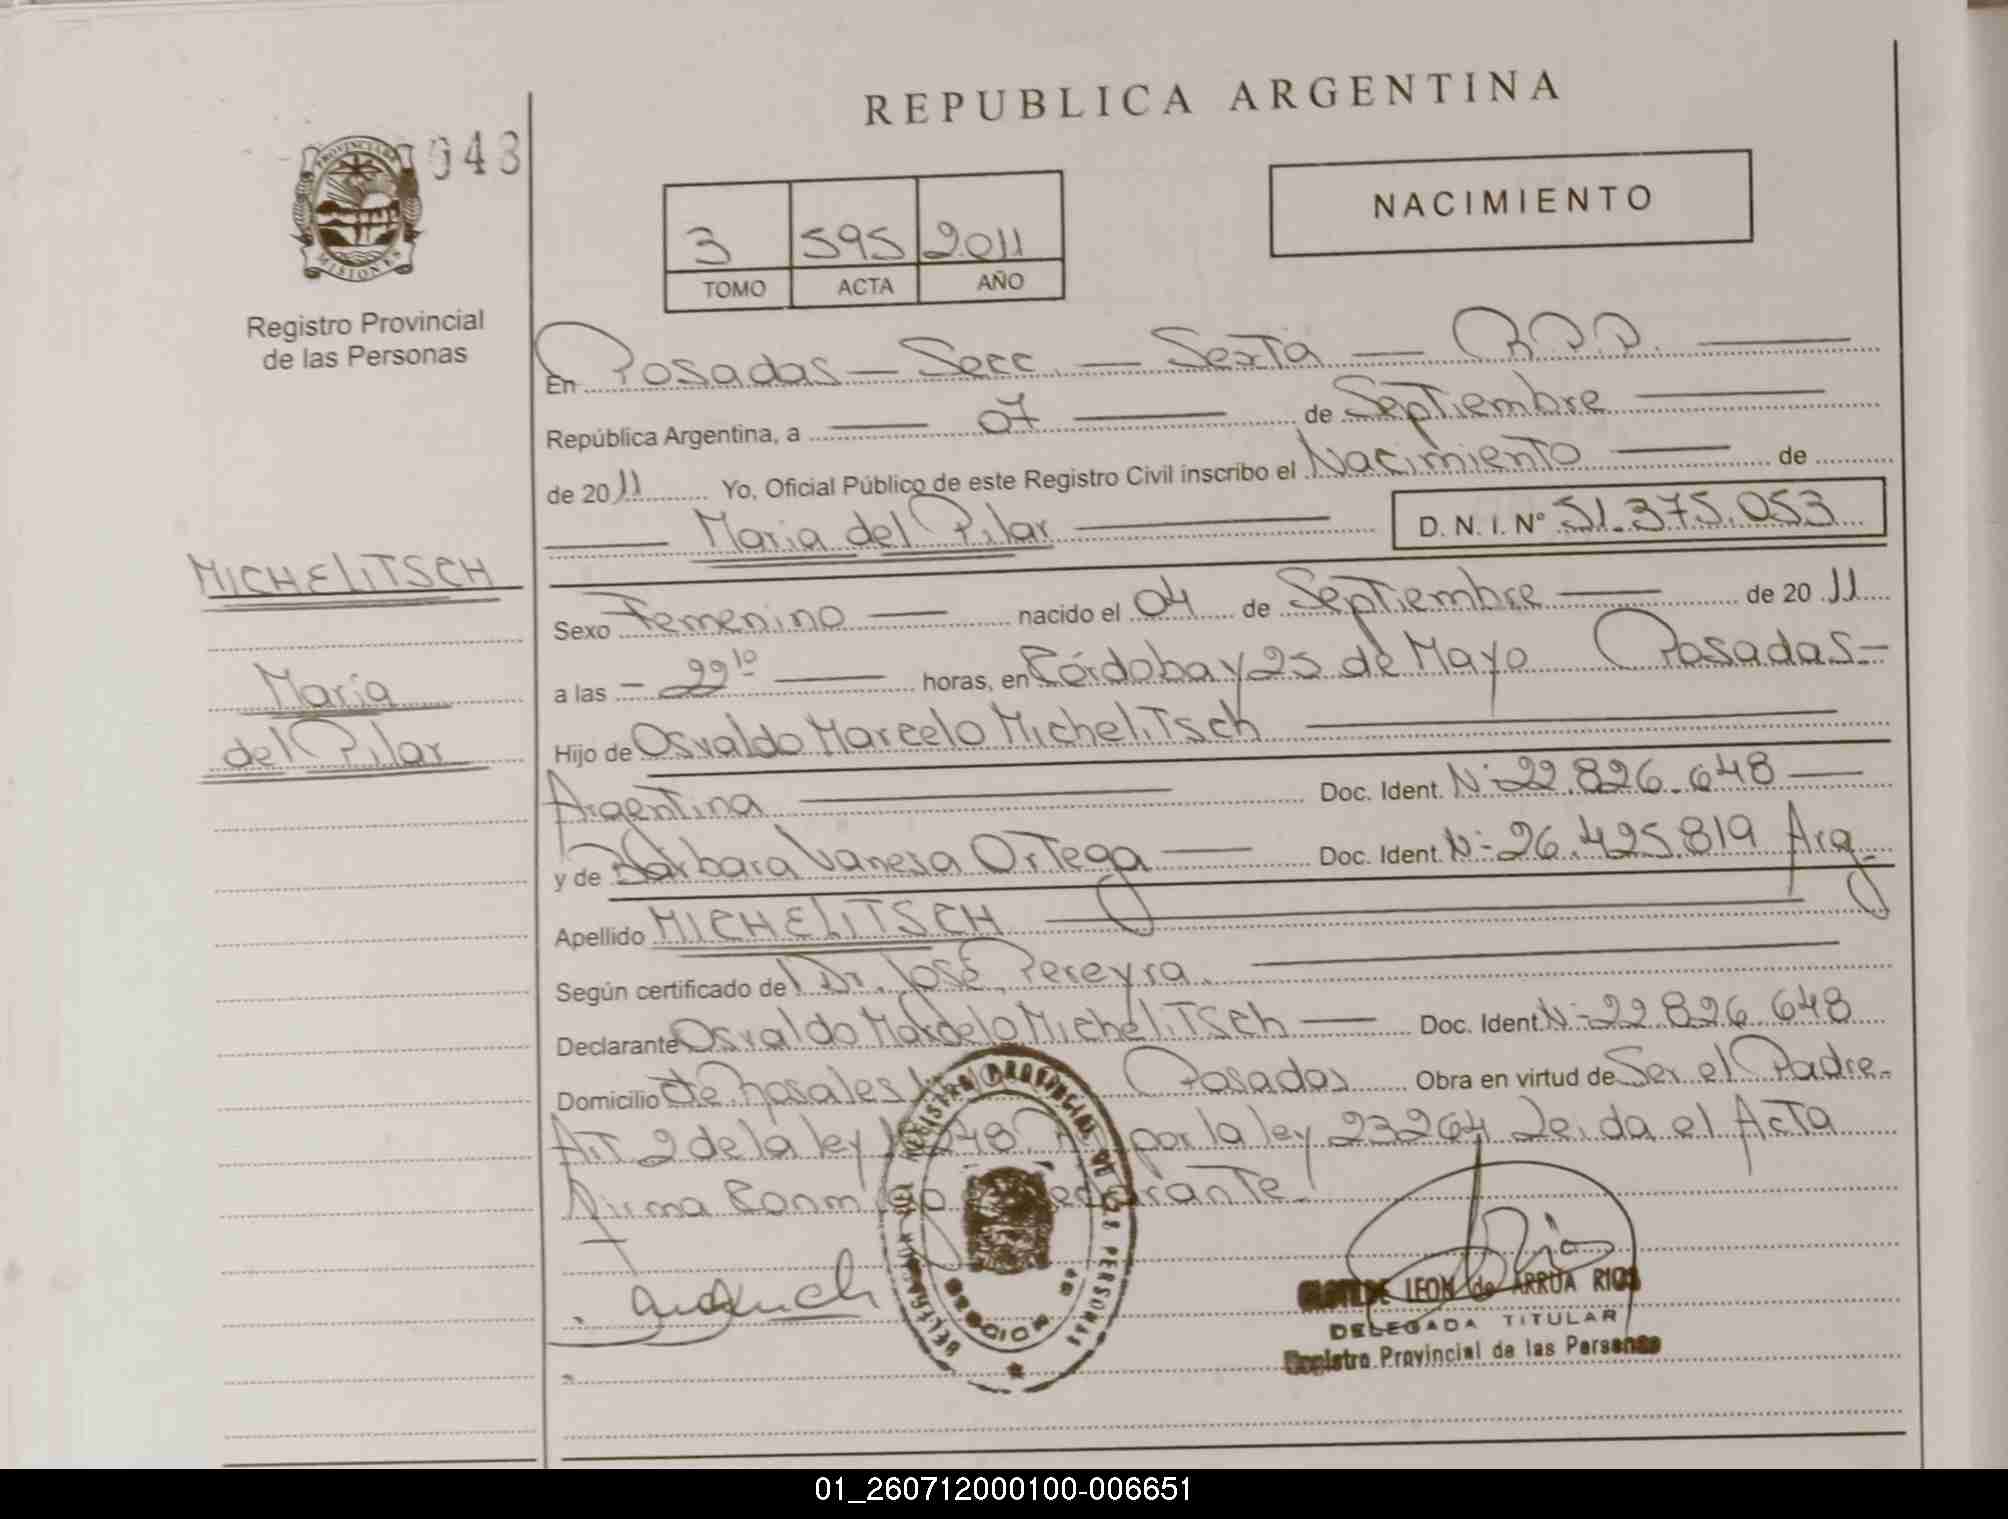 REPUBLICA ARGENTINA
043
PROVINCIA DE
MISIONES
Registro Provincial
de las Personas
NACIMIENTO
3 595 2011
TOMO ACTA AÑO
En Posadas — Secc — Sexta — R.P.P. —
República Argentina, a — 07 — de Septiembre —
de 2011 Yo, Oficial Público de este Registro Civil inscribo el Nacimiento — de
— Maria del Pilar — D. N. I. Nº 51.375.053
MICHELITSCH
María
del Pilar
Sexo Femenino — nacido el 04 de Septiembre — de 2011
a las — 22 10 — horas, en Córdoba y 25 de Mayo Posadas —
Hijo de Osvaldo Marcelo Michelitsch —
Argentina — Doc. Ident. Nº 22.826.648 —
y de Bárbara Vanesa Ortega — Doc. Ident. Nº 26.425.819 Arg.
Apellido MICHELITSCH —
Según certificado del Dr. José Pereyra —
Declarante Osvaldo Marcelo Michelitsch — Doc. Ident. Nº 22.826.648
Domicilio de Rosales Posadas Obra en virtud de Ser el Padre.
Art 2 de la ley por la ley 23264 Leida el Acta
firma
REGISTRO PROVINCIAL DE LAS PERSONAS
LEON de ARRUA RIOS
DELEGADA TITULAR
Registro Provincial de las Personas
01_260712000100-006651